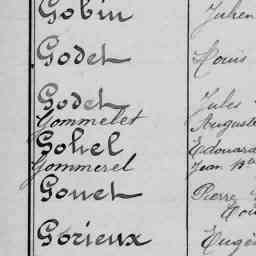 Gobin Julien
Godet Louis
Godet Jules
Gommelet Auguste
Gohel Edouard
Gommerel Jean Bte
Gouet Pierre
Gorieux Eugè